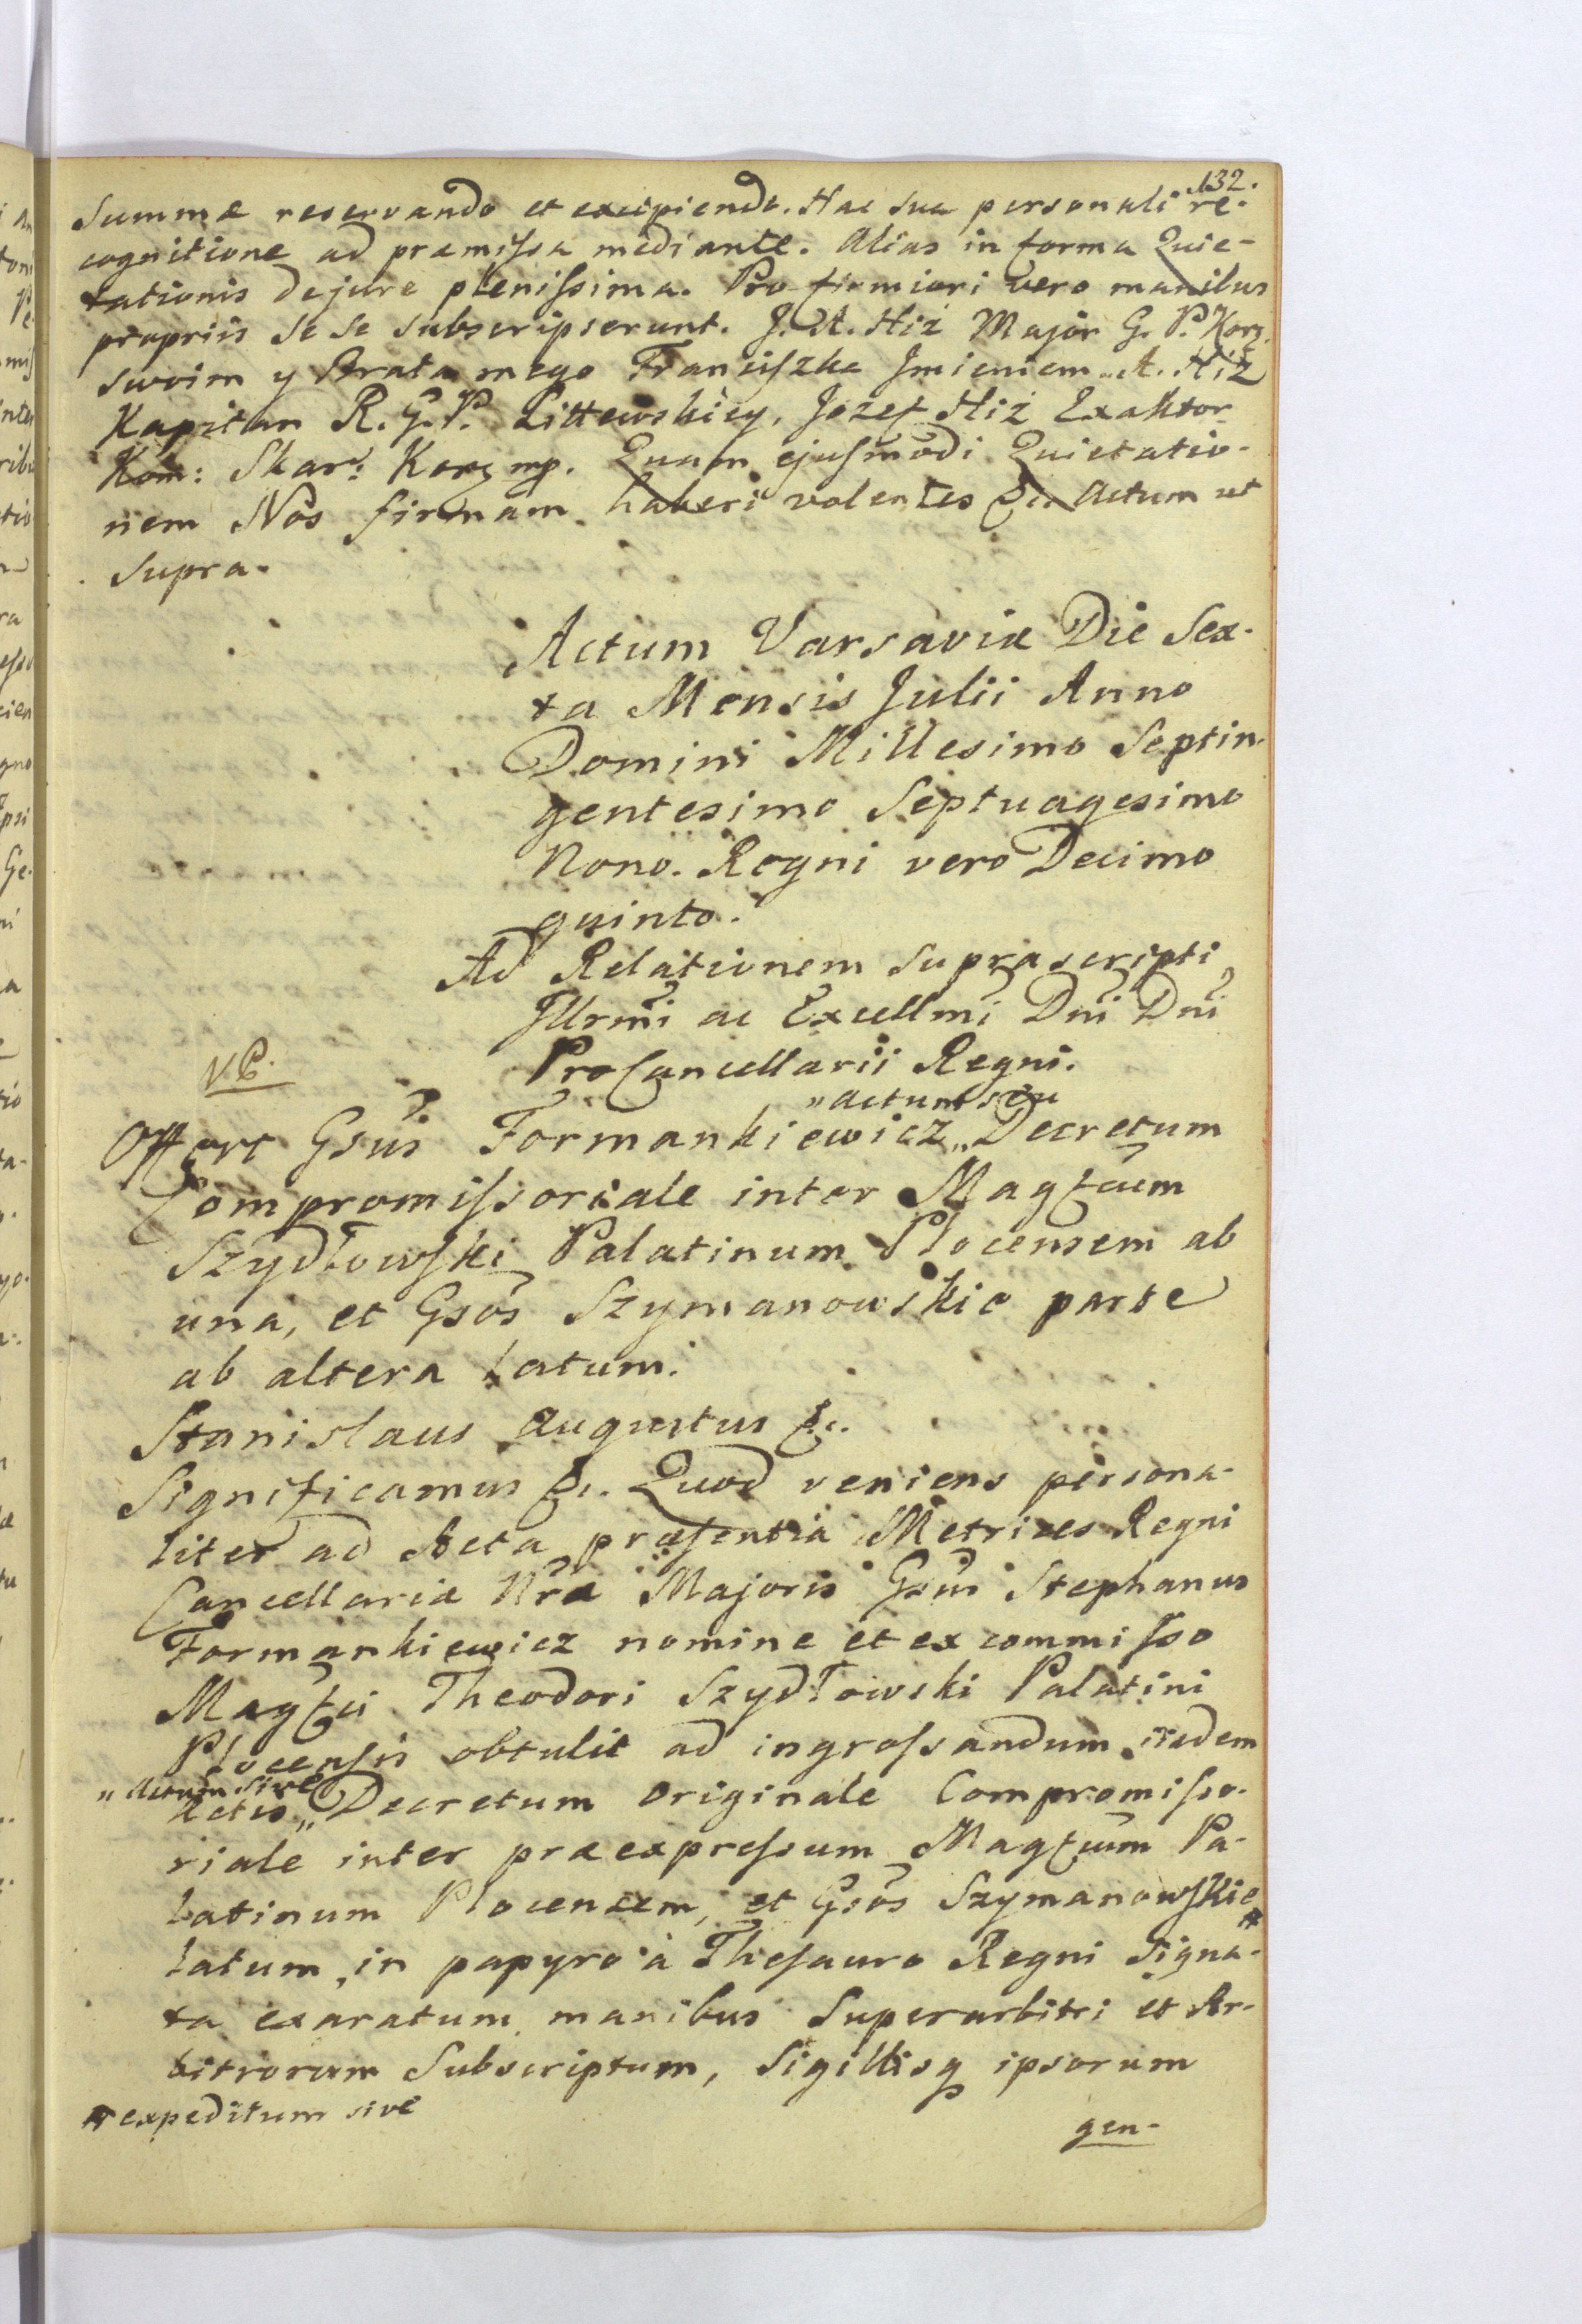 132.
Summæ reservando et excipiendo. Hac sua personali re-
cognitione ad præmissa mediante. Alias in forma Quie-
tationis dejure plenissima. Pro firmiori vero manibus
propriis se se subscripserunt. J. A. Hiż Major G. P. Korz.
swoim y Brata mego Franciszka Jmieniem. A. Hiż
Kapitan R. G. P. Littewskiey, Jozef Hiż Exaktor
Kom: Skar: Korz mp. Quam ejusmodi Quietatio-
nem Nos firmam haberi volentes &c. Actum ut
supra.
Actum Varsaviæ Die Sex-
ta Mensis Julii Anno
Domini Millesimo Septin-
gentesimo Septuagesimo
Nono. Regni vero Decimo
quinto.
Ad Relationem supra scripti
Illrmi ac Excellmi Dni Dni
ProCancellarii Regni.
"actum seu
Offert Gsus Formankiewicz "Decretum
Compromissoriale inter Magfcum
Szydłowski Palatinum Plocensem ab
una, et Gsos Szymanowskie parte
ab altera latum.
Stanislaus Augustus &c.
Significamus &c. Quod veniens persona-
liter ad Acta præsentia Metrices Regni
Cancellariæ Nræ Majoris Gsus Stephanus
Formankiewicz nomine et ex commisso
Magfci Theodori Szydłowski Palatini
Plocensis obtulit ad ingrossandum iisdem
"actum sive
Actis "Decretum originale Compromisso-
riale inter præexpressum Magfcum Pa-
latinum Plocensem, et Gsos Szymanowskie
latum, in papyro à Thesauro Regni signa-
ta exaratum manibus Superarbitri et Ar-
bitrorum Subscriptum, Sigillisq ipsorum
expeditum sive
gen-